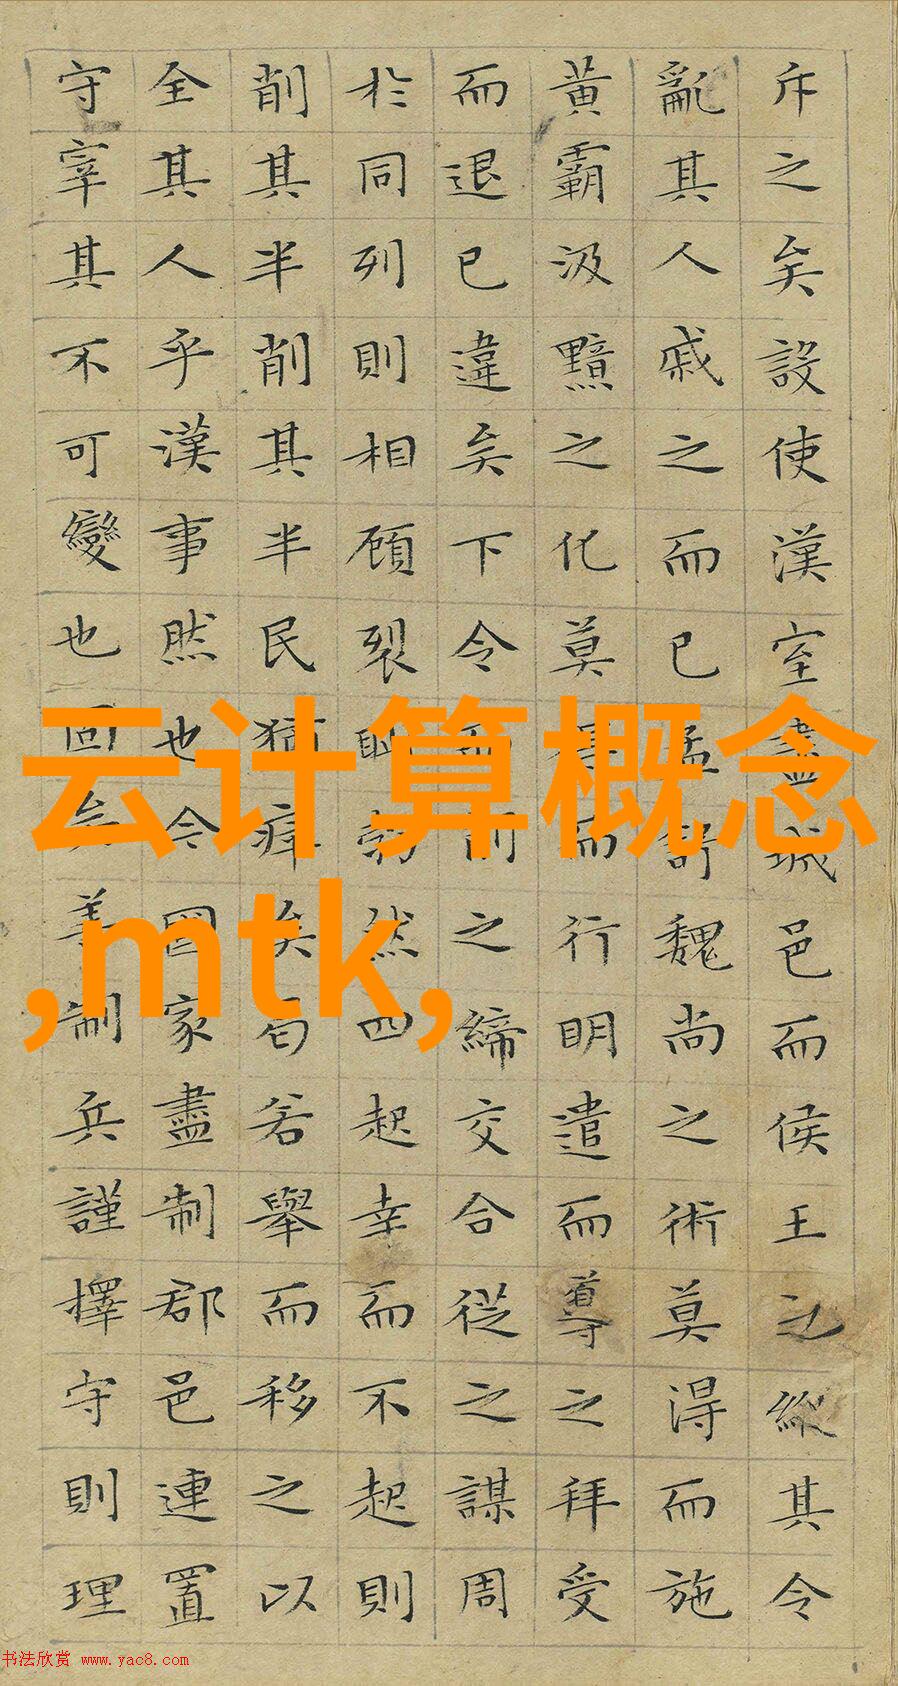 斥之矣設使漢室盡城邑而侯王之縱其令
亂其人戚之而已孟舒魏尚之術莫得而施
黃霸汲黯之化莫得而行明遣而導之拜受
而退已違矣下令而削之締交合從之謀周
於同列則相顧裂眦勃然四起幸而不起則
削其半削其半民猶瘁矣曷若舉而移之以
全其人乎漢事然也今國家盡制郡邑連置
守宰其不可變也固矣善制兵謹擇守則理
云计算概念
,mtk,
书法欣赏 www.yac8.com